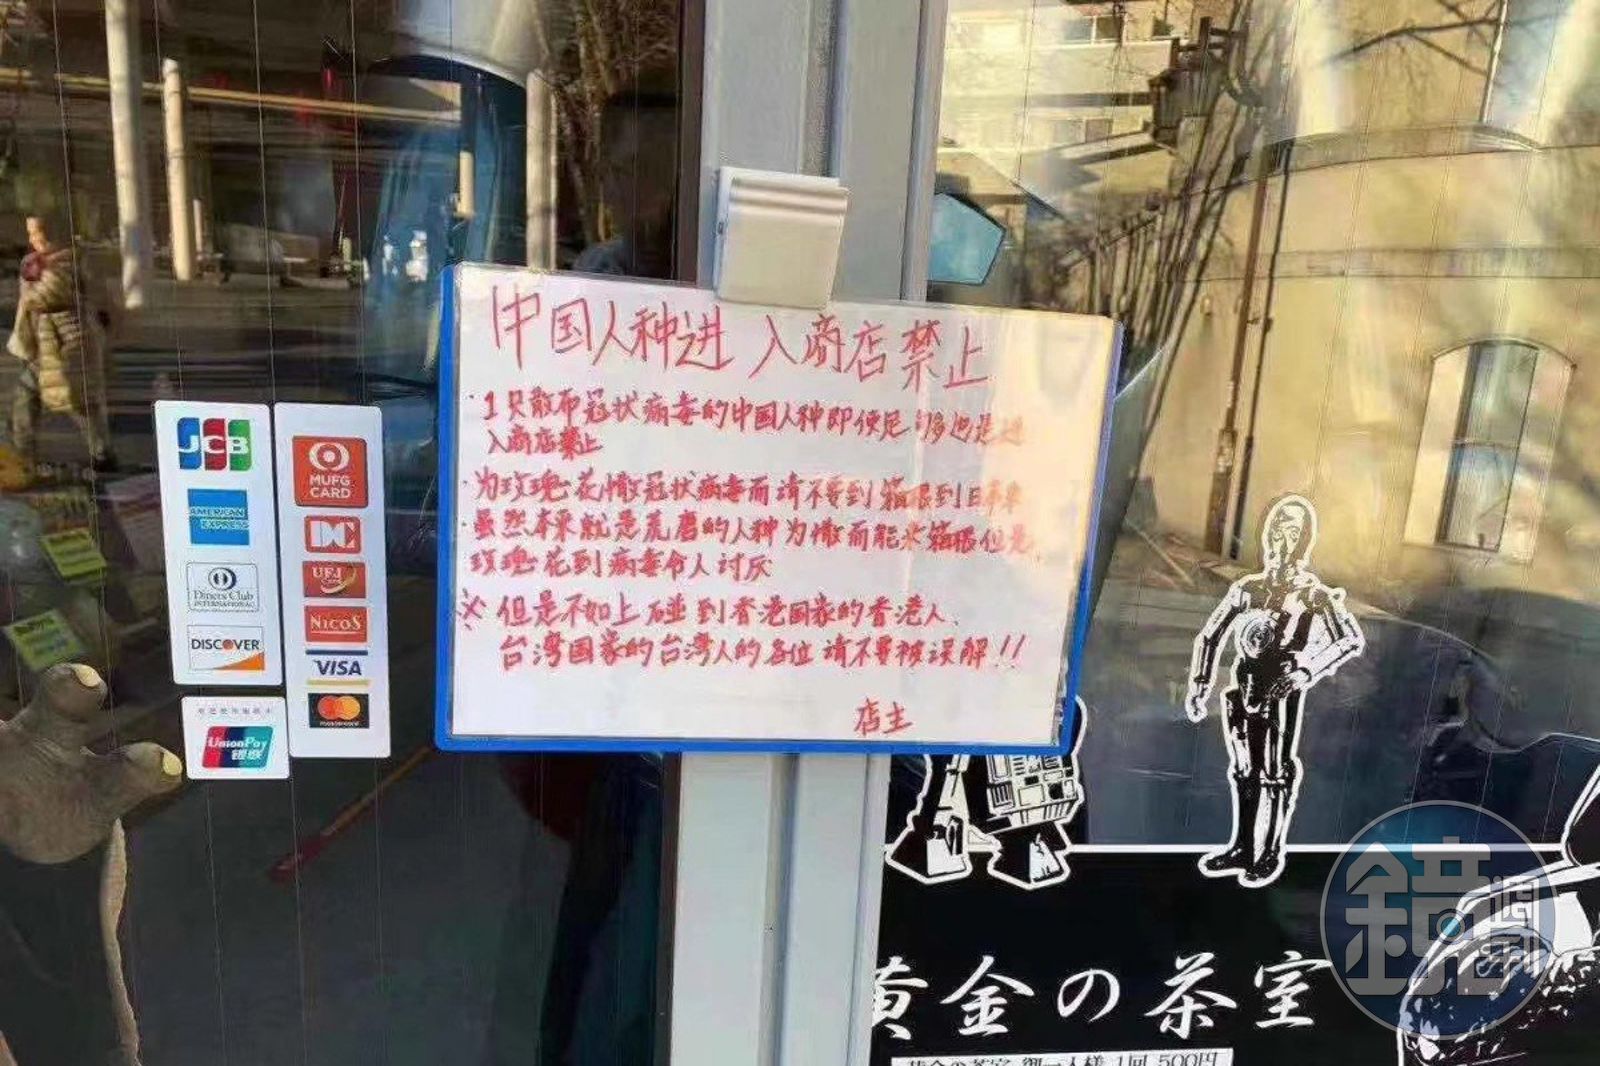 中国人种进入商店禁止
·1只散布冠状病毒的中国人种即使足够也是进
入商店禁止
·为玫瑰花撒冠状病毒而请不要到箱根到日本来
·虽然本来就是荒磨的人种为撒而能来箱根但是、
玫瑰花到病毒令人讨厌
※但是不如上碰到香港国家的香港人、
台湾国家的台湾人的各位请不要被误解!!
店主
JCB
AMERICAN EXPRESS
Diners Club
INTERNATIONAL
DISCOVER
MUFG
CARD
DC
UFJ
Card
NICOS
VISA
mastercard
UnionPay
银联
黄金の茶室
黄金の茶室 御一人様 1回 500円
鏡週刊